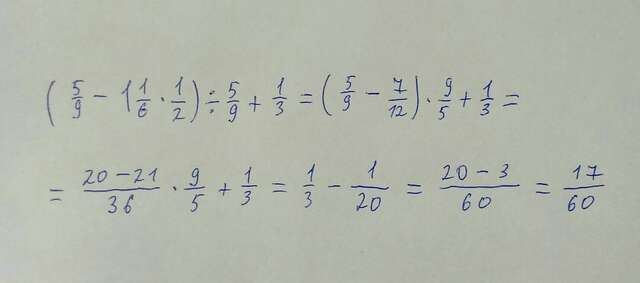 (5/9 − 1 1/6 · 1/2) ÷ 5/9 + 1/3 = (5/9 − 7/12) · 9/5 + 1/3 =
= (20 − 21)/36 · 9/5 + 1/3 = 1/3 − 1/20 = (20 − 3)/60 = 17/60